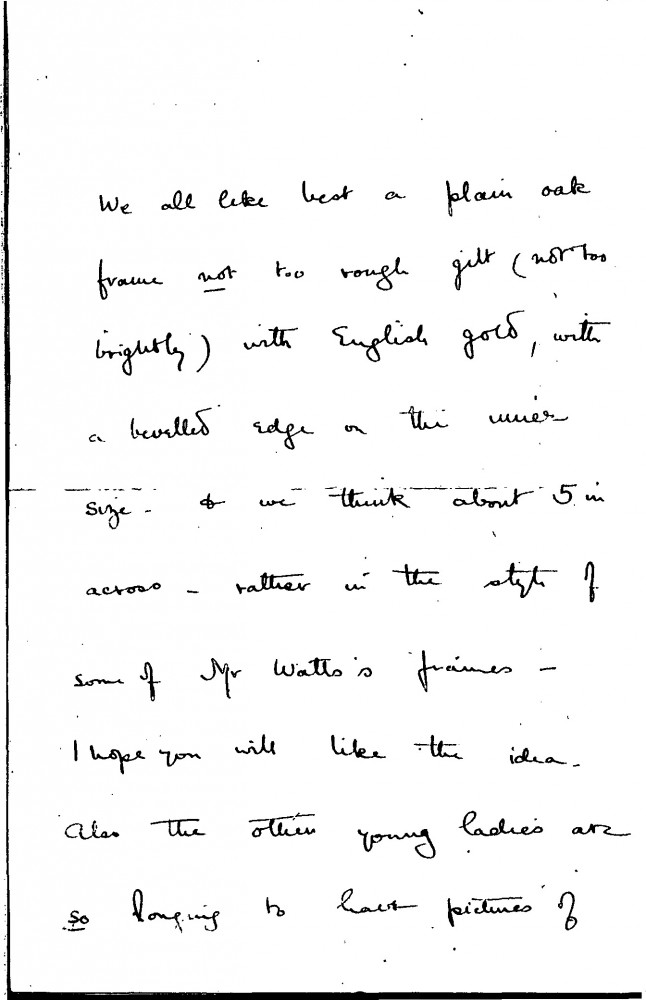 We all like best a plain oak
frame not too rough gilt (not too
brightly) with English gold, with
a bevelled edge on the inner
size - & we think about 5 in
across - rather in the style of
some of Mr Watts's frames -
I hope you will like the idea -
Also the other young ladies are
so longing to have pictures of